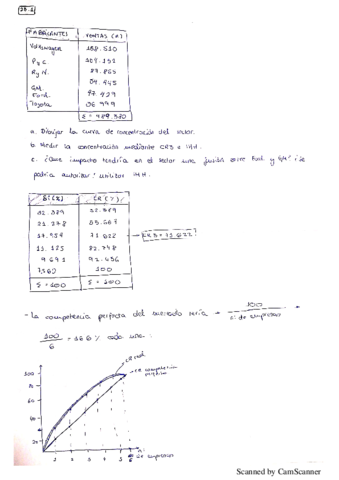 FABRICANTES VENTAS (€)
Volkswagen 158.510
P y C. 104.151
R y N.
G.M. 54.445
Ford. 47.429
Toyota 36.999
a. Dibujar la curva de concentración del sector.
b. Medir la concentración mediante CR3 e IHH.
c. ¿Qué impacto tendría en el sector una fusión entre Ford y GM? ¿Se
podría autorizar? utilizar IHH.
Si (%) CR (%)
32.389 32.389
21.278 53.667
17.954 71.622 CR3 = 71.622%
11.125 82.748
9.691 92.436
7.560 100
Σ = 100 Σ = 100
- La competencia perfecta del mercado sería → 100
nº de empresas
100
6 cada una
CR real
CR competencia
perfecta
100
80
60
40
20
1 2 3 4 5 6 nº
de empresas
Scanned by CamScanner